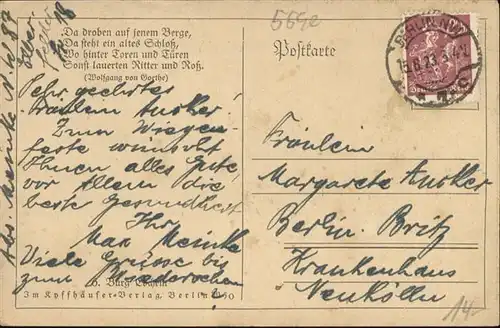 Da droben auf jenem Berge,
Da steht ein altes Schloß,
Wo hinter Toren und Türen
Sonst lauerten Ritter und Roß.
(Wolfgang von Goethe)
Postkarte
5692
BERLIN NW
Deutsches Reich
Abs. Meinke N.W 87
Sehr geehrtes
Fräulein Anther
Zum Wiegen-
feste wünscht
Ihnen alles Gute,
vor Allem die
beste Gesundheit
Ihr
Max Meinke
Viele Grüsse bis
zum Wiedersehen
!
6. Burg
Im Kyffhäuser-Verlag, Berlin
Fräulein
Margarete Anther
Berlin. Britz
Krankenhaus
Neukölln
14-